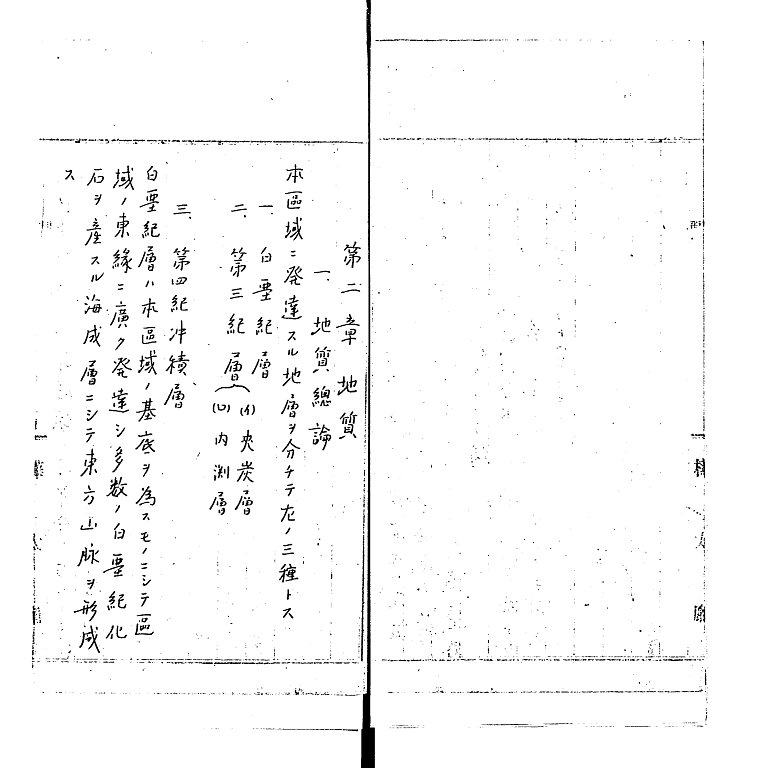 第二章 地質
一、地質總論
本區域ニ発達スル地層ヲ分チテ左ノ三種トス
一、白堊紀層
二、第三紀層
(イ)夾炭層
(ロ)内渕層
三、第四紀冲積層
白堊紀層ハ本區域ノ基底ヲ為スモノニシテ區
域ノ東縁ニ廣ク発達シ多数ノ白堊紀化
石ヲ産スル海成層ニシテ東方山脈ヲ形成
ス